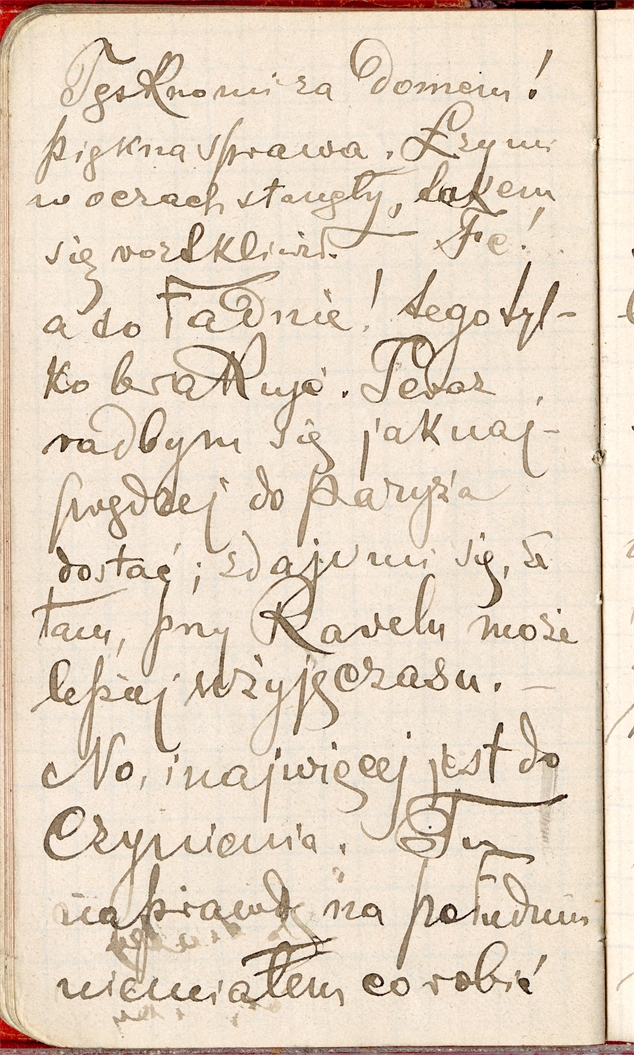 Tęskno mi za Domem!
piękna sprawa. Łzy mi
w oczach stanęły, takem
się roztkliwił. Fe!
a to Ładnie! tego tyl-
ko brakuje. Teraz
radbym się jaknaj-
prędzej do paryża
dostać; zdaje mi się, że
tam, przy Ravelu może
lepiej użyję czasu. —
No, i najwięcej jest do
Czynienia. Tu
naprawdę "na południu
nie miałem co robić